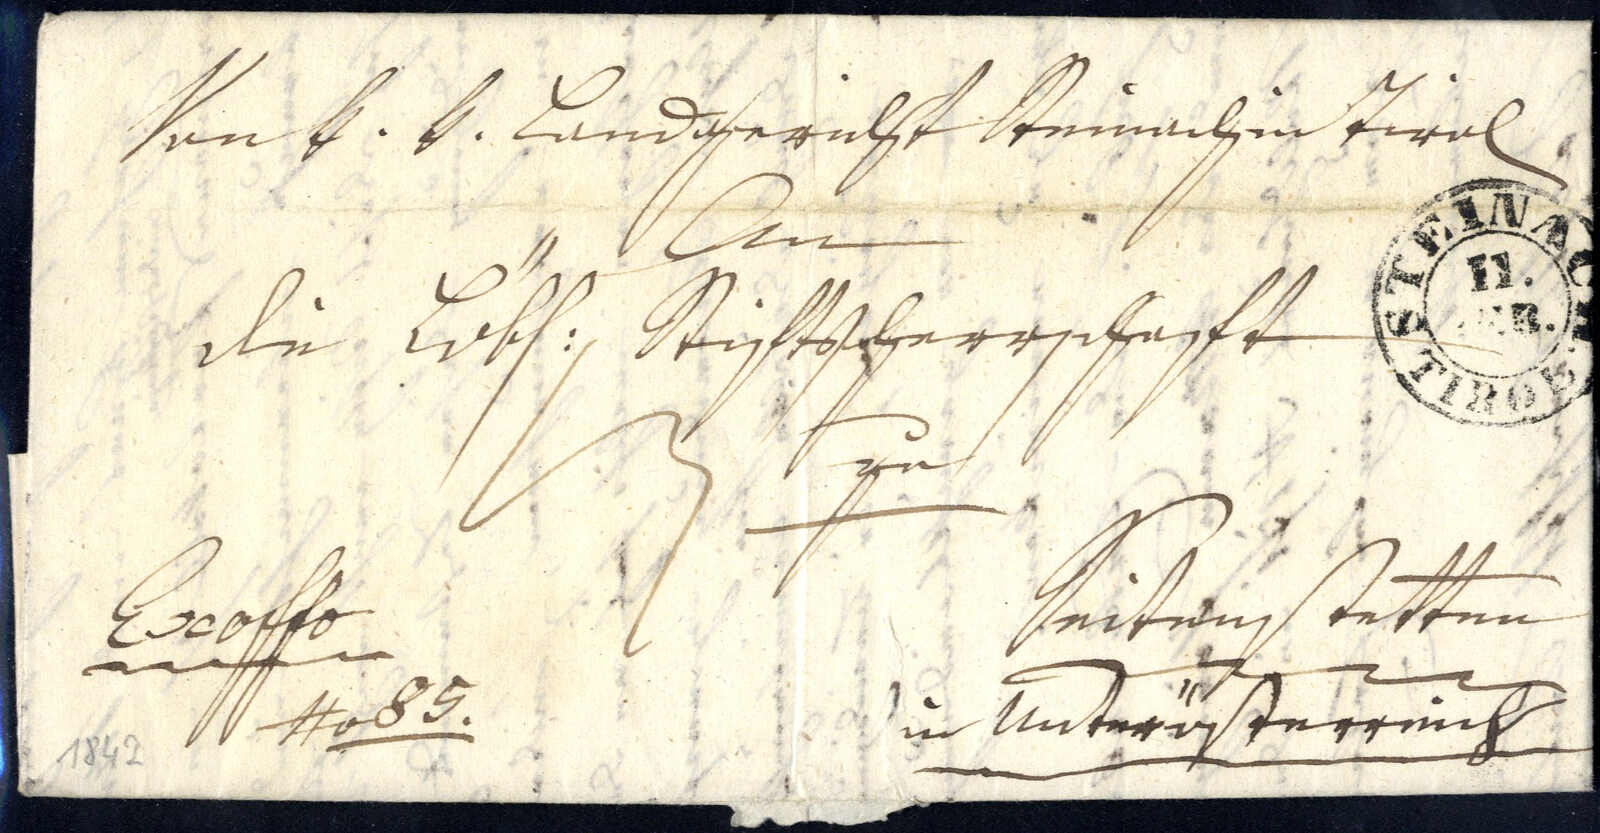 Von k. k. Landgericht Steinach in Tirol
An
die Löbl: Stiftsherrschaft
zu
Seitenstetten
in Unterösterreich
Exoffo
No 85.
1842
STEINACH
11.
FEB.
TIROL.